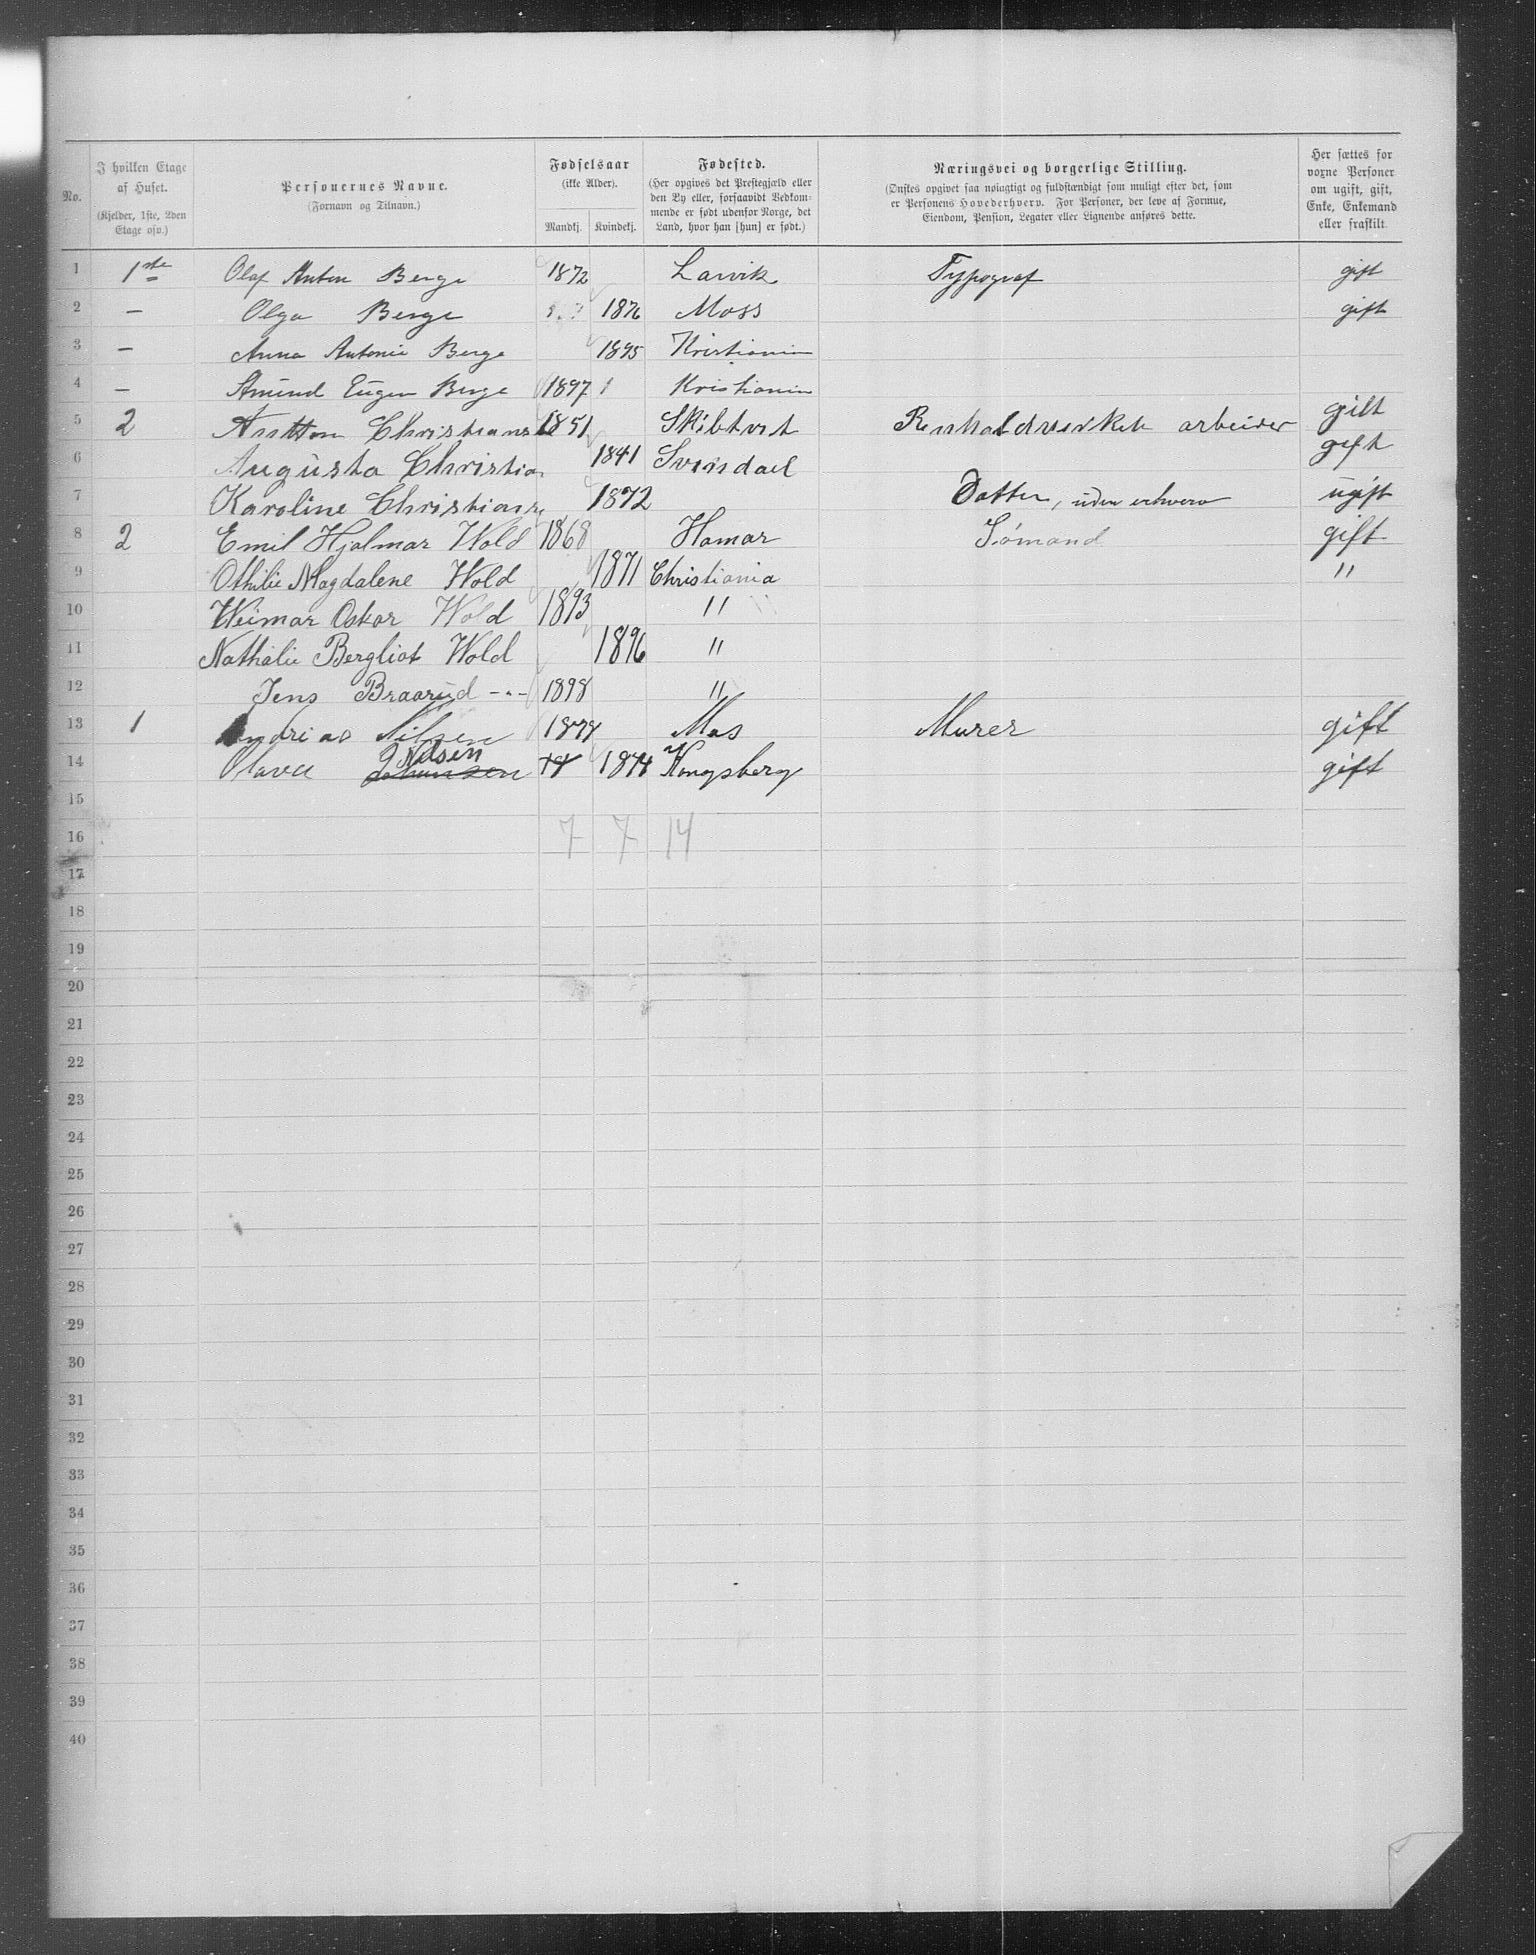 No.
I hvilken Etage af Huset.
(Kjelder, 1ste, 2den Etage osv.)
Personernes Navne.
(Fornavn og Tilnavn.)
Fødselsaar
(ikke Alder).
Mandkj. Kvindekj.
Fødested.
(Her opgives det Prestegjæld eller
den By eller, forsaavidt Vedkom-
mende er født udenfor Norge, det
Land, hvor han [hun] er født.)
Næringsvei og borgerlige Stilling.
(Ønskes opgivet saa nøiagtigt og fuldstændigt som muligt efter det, som
er Personens Hovederhverv. For Personer, der leve af Formue,
Eiendom, Pension, Legater eller Lignende anføres dette.
Her sættes for
voxne Personer
om ugift, gift,
Enke, Enkemand
eller fraskilt.
1 1ste Olaf Anton Berge 1872 Larvik Typograf gift
2 — Olga Berge 1876 Moss gift
3 — Anna Antonie Berge 1895 Kristiania
4 — Amund Eugen Berge 1897 Kristiania
5 2 Antton Christians 1851 Skibtvet Renholdverkets arbeider gift
6 Augusta Christian 1841 Svinsdael gift
7 Karoline Christians 1872 Datter, uden erhverv ugift
8 2 Emil Hjalmar Wold 1868 Hamar Sømand gift
9 Othilie Magdalene Wold 1871 Christiania "
10 Weimar Oskar Wold 1893 "
11 Nathalie Bergliot Wold 1896 "
12 Jens Braarud -"- 1898 "
13 1 Andrias Nilsen 1878 Mas Murer gift
14 Olava Johansen Nilsen 78 1878 Kongsberg gift
15
16 7 7 14
17
18
19
20
21
22
23
24
25
26
27
28
29
30
31
32
33
34
35
36
37
38
39
40